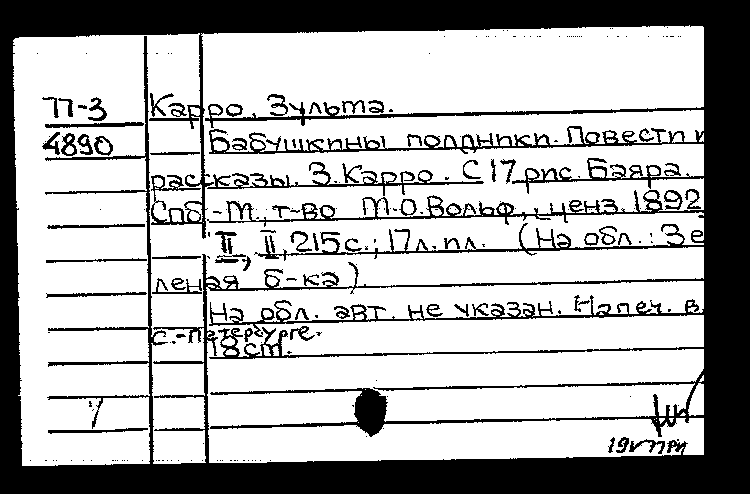 П-3 Карро, Зульма.
4890 Бабушкины полдники. Повести и
рассказы. З. Карро. С 17 рис. Баяра.
Спб.-М., т-во М.О. Вольф, ценз. 1892
II, II, 215 с.; 17 л. пл. (На обл.: Зе
леная б-ка).
На обл. авт. не указан. Напеч. в
С.-Петербурге.
18 cm.